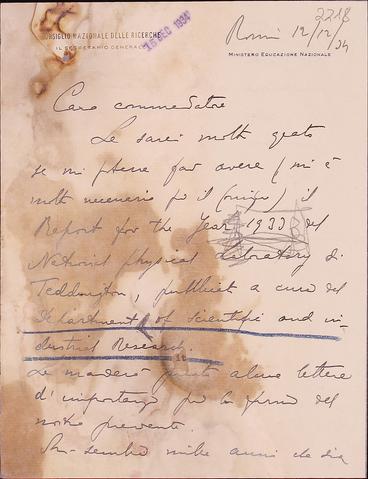 2218
CONSIGLIO NAZIONALE DELLE RICERCHE
IL SEGRETARIO GENERALE
16 DEC 1934
Roma 12/12/34
MINISTERO EDUCAZIONE NAZIONALE
Caro commendatore
Le sarei molto grato
se mi potesse far avere (mi è
molto necessario per il) il
Report for the Year 1933 del
National physical Laboratory di
Teddington, pubblicato a cura del
Department of Scientific and in-
dustrial Research.
Le manderò alcune lettere
d'importanza per la firma del
nostro presidente.
mille anni che sia